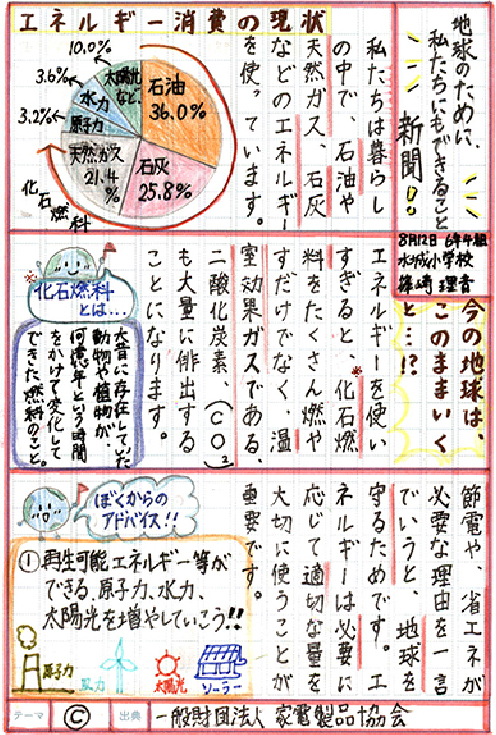 地球のために、
私たちにもできること
新聞!!
8月12日 6年4組
水城小学校
篠崎 理音
エネルギー消費の現状
石油
36.0%
石炭
25.8%
天然ガス
21.4
%
原子力
3.2%
水力
3.6%
太陽光
など、
10.0%
化石燃料
私たちは暮らし
の中で、石油や
天然ガス、石炭
などのエネルギー
を使っています。
今の地球は、
このままいく
と…!?
エネルギーを使い
すぎると、※化石燃
料をたくさん燃や
すだけでなく、温
室効果ガスである、
二酸化炭素、(CO2)
も大量に排出する
ことになります。
※
化石燃料
とは…
大昔に存在していた
動物や植物が、
何億年という時間
をかけて変化して
できた燃料のこと。
節電や、省エネが
必要な理由を一言
でいうと、地球を
守るためです。エ
ネルギーは必要に
応じて適切な量を
大切に使うことが
重要です。
ぼくからの
アドバイス!!
①再生可能エネルギー等が
できる、原子力、水力、
太陽光を増やしていこう!!
原子力
風力
太陽光
ソーラー
テーマ
©
出典
一般財団法人 家電製品協会